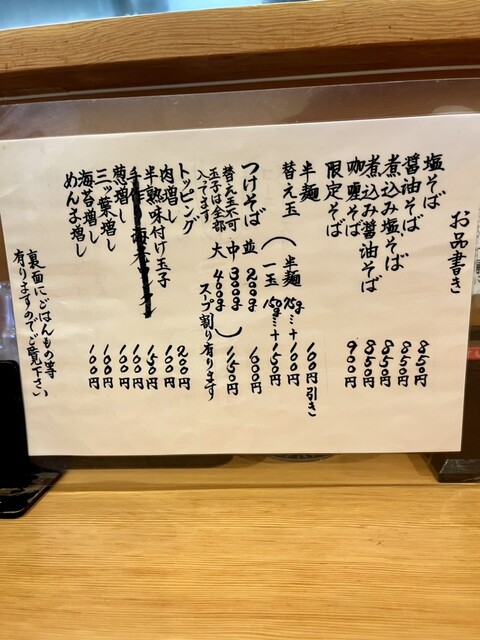 お品書き
塩そば 850円
醤油そば 850円
煮込み塩そば 850円
煮込み醤油そば 850円
咖喱そば 900円
限定そば
半麺 100円引き
替え玉 半麺 75g…+100円
一玉 150g…+150円
つけそば 並 200g
中 300g
大 400g
替え玉不可
玉子は全部
入ってます
スープ割り有ります
トッピング
肉増し 200円
半熟味付け玉子 100円
手作り海老 150円
葱増し 100円
三ッ葉増し 100円
海苔増し 100円
めんま増し 100円
裏面にごはんもの等
有りますのでご覧下さい